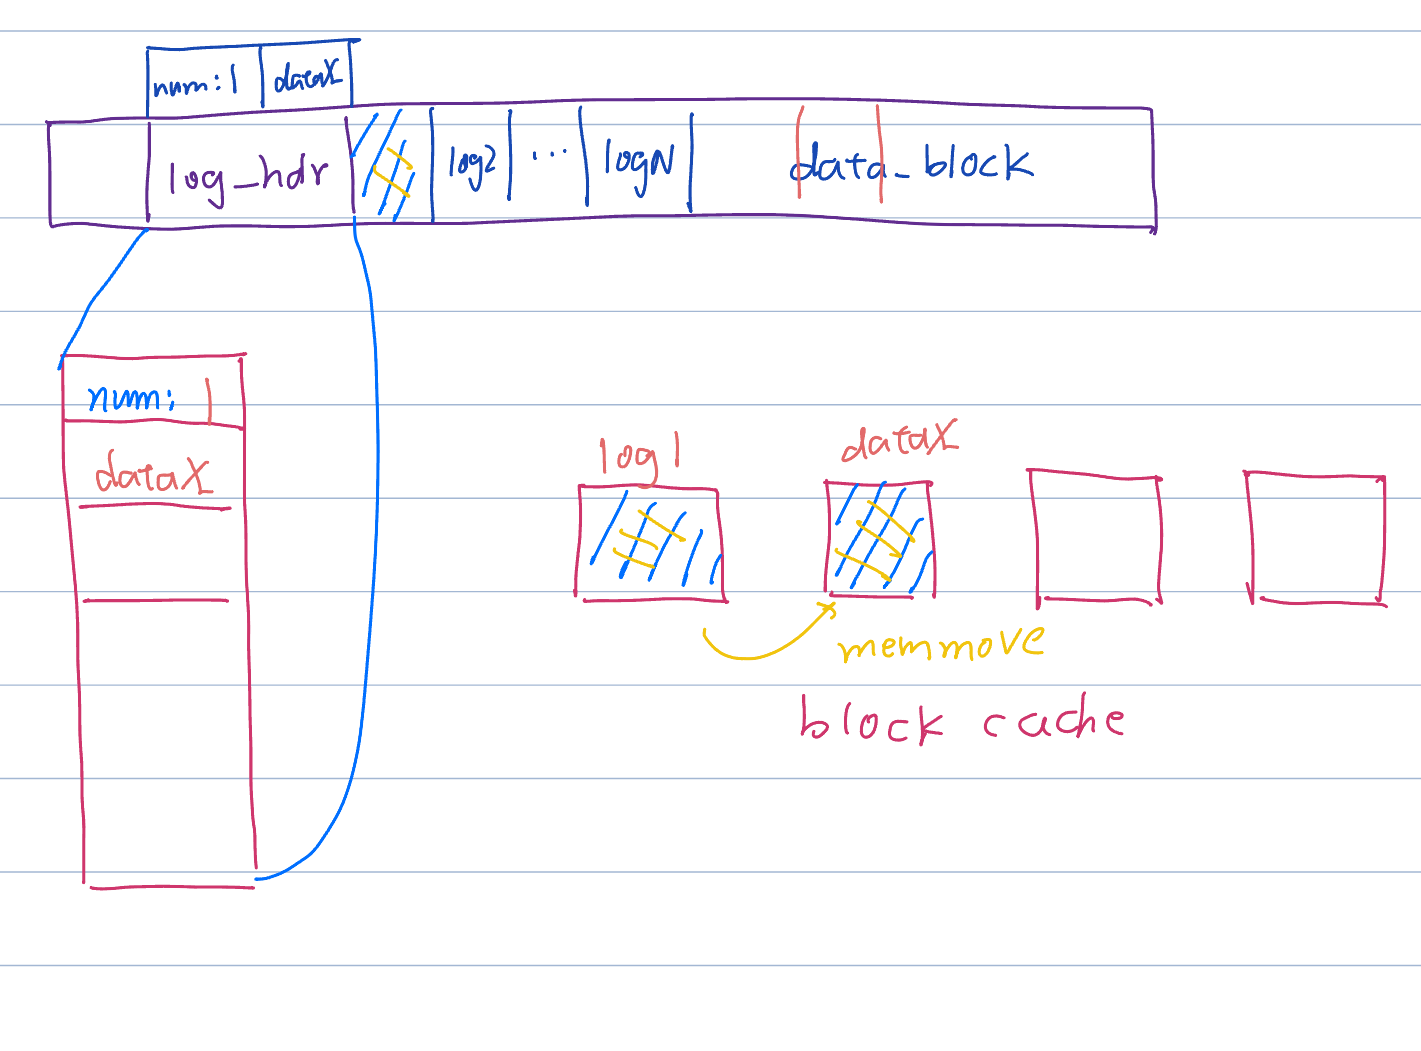 num:1 dataX
log_hdr log2 ... logN data_block
num: 1
dataX
log1 dataX
memmove
block cache